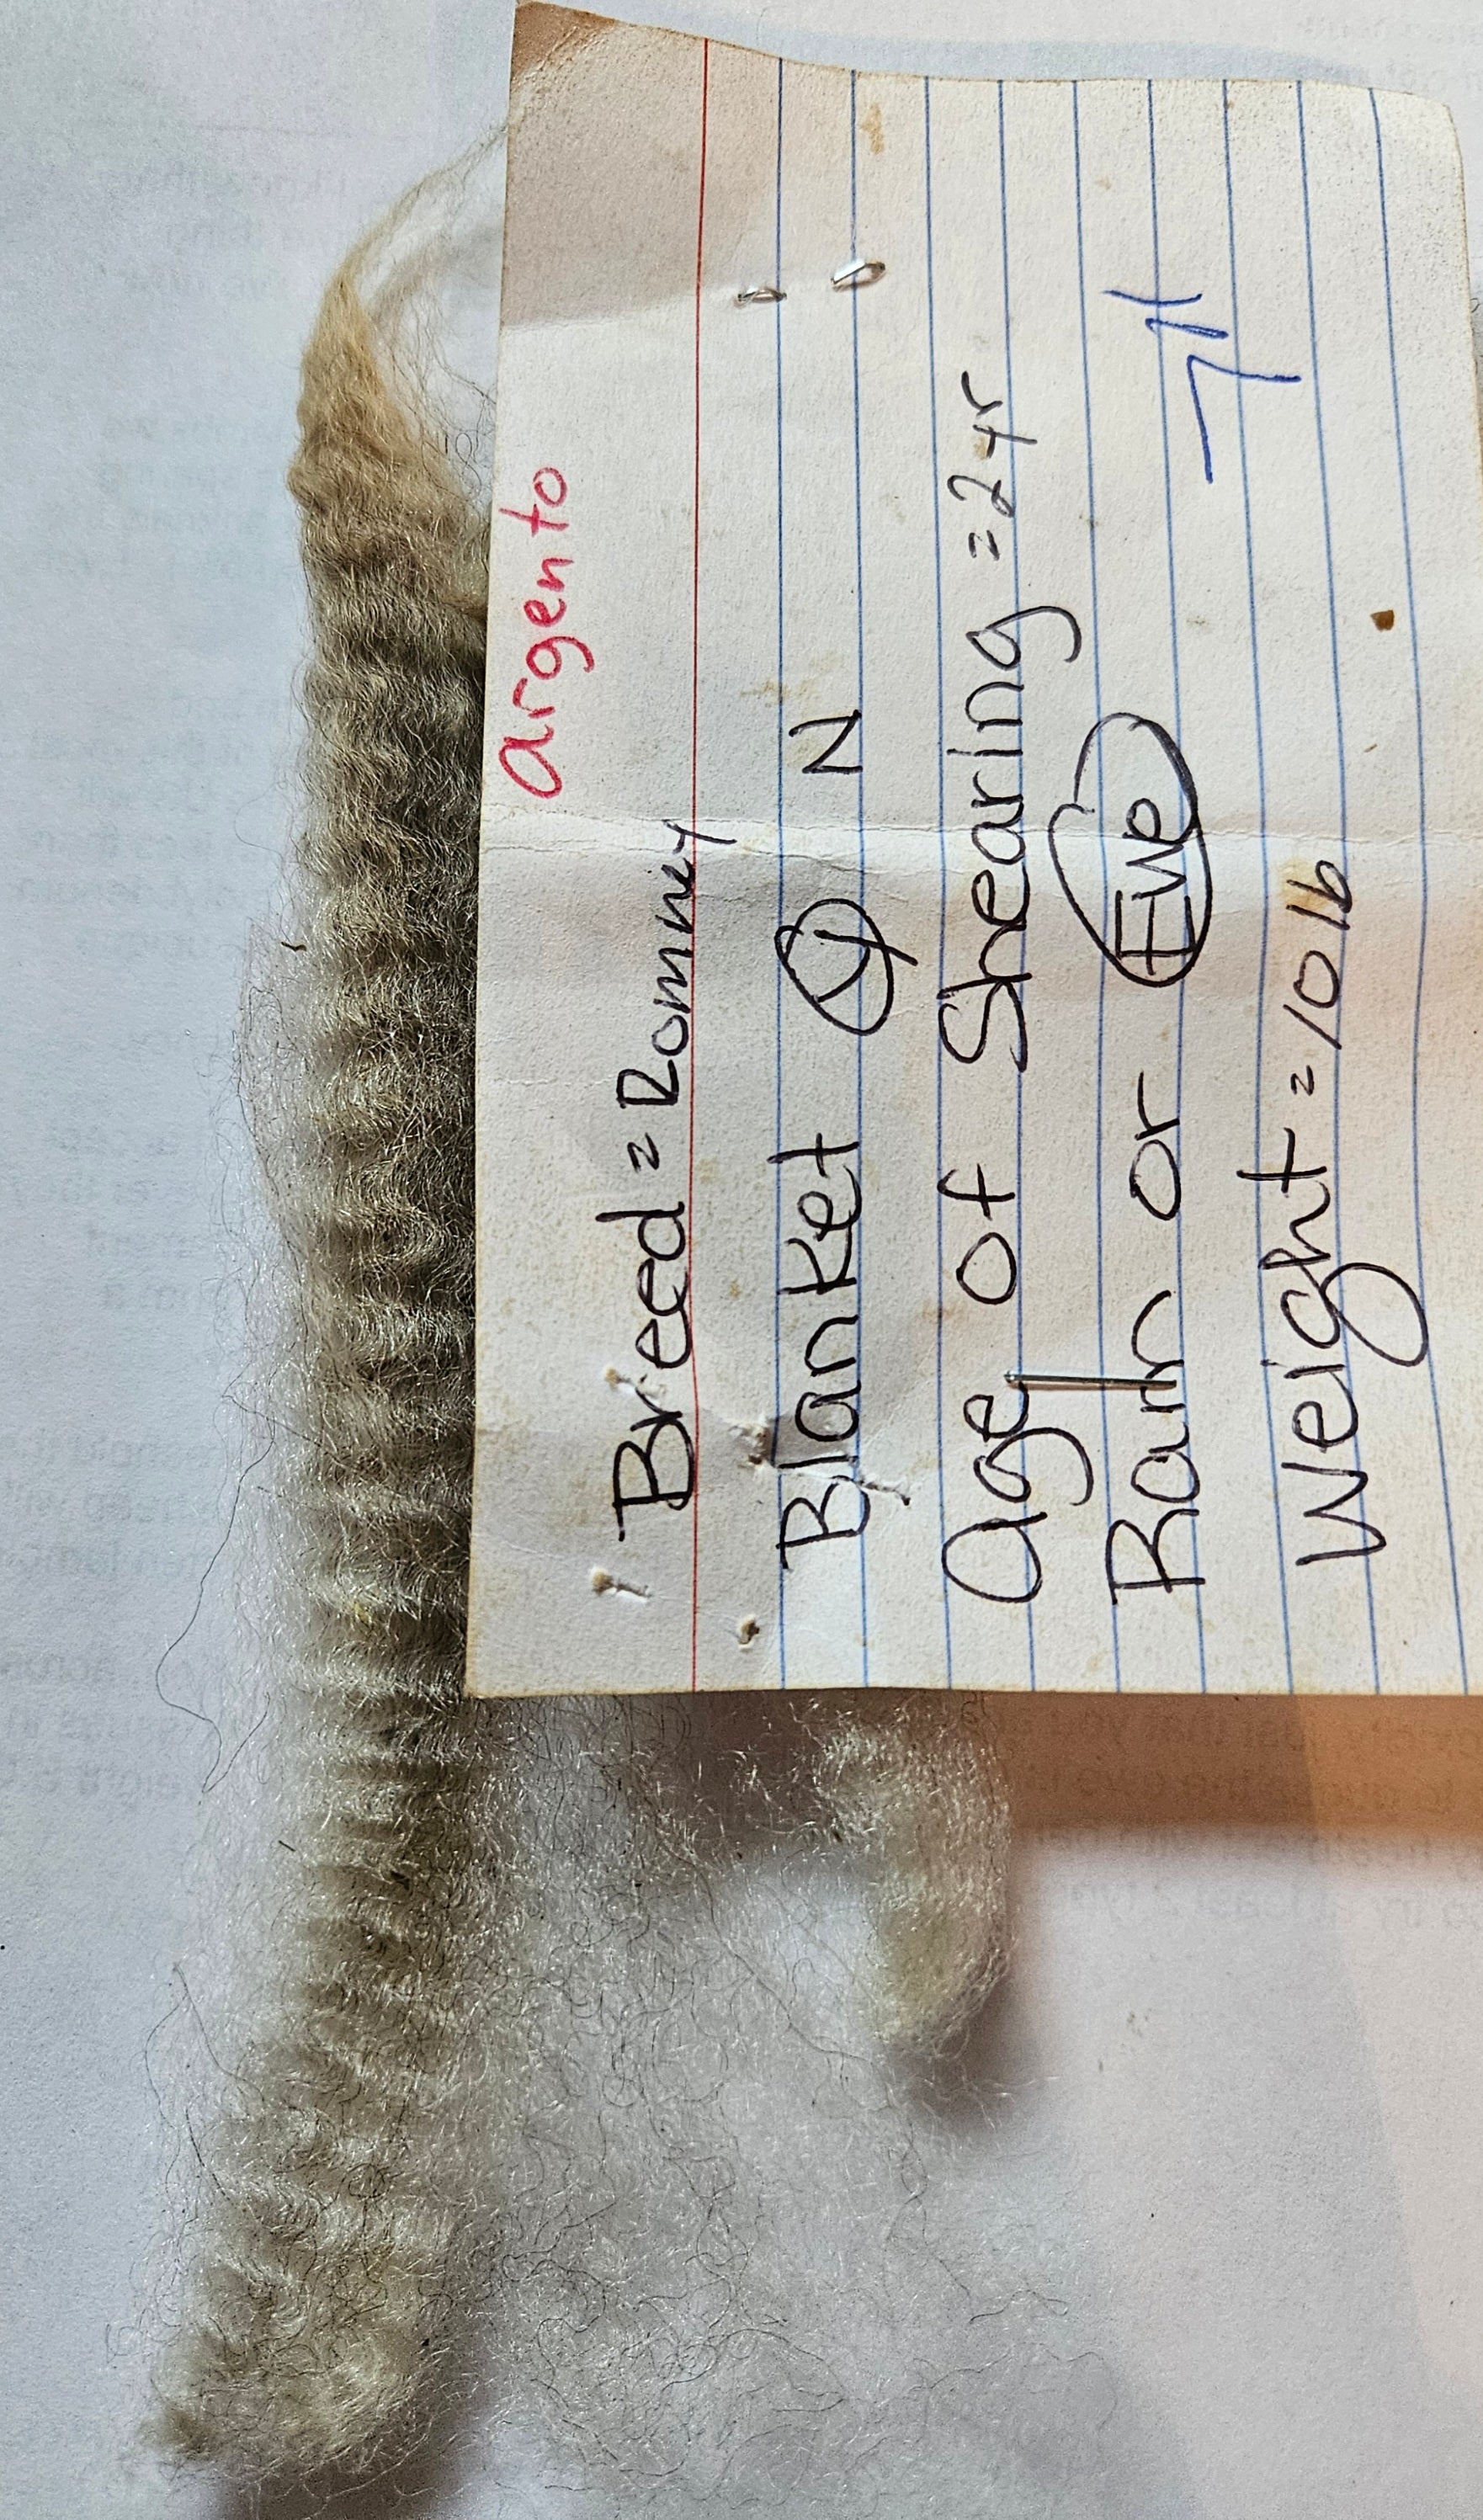 argento
Breed = Romney
Blanket Y N
Age of Shearing = 2 yr
Ram or Ewe
Weight = 10 lb